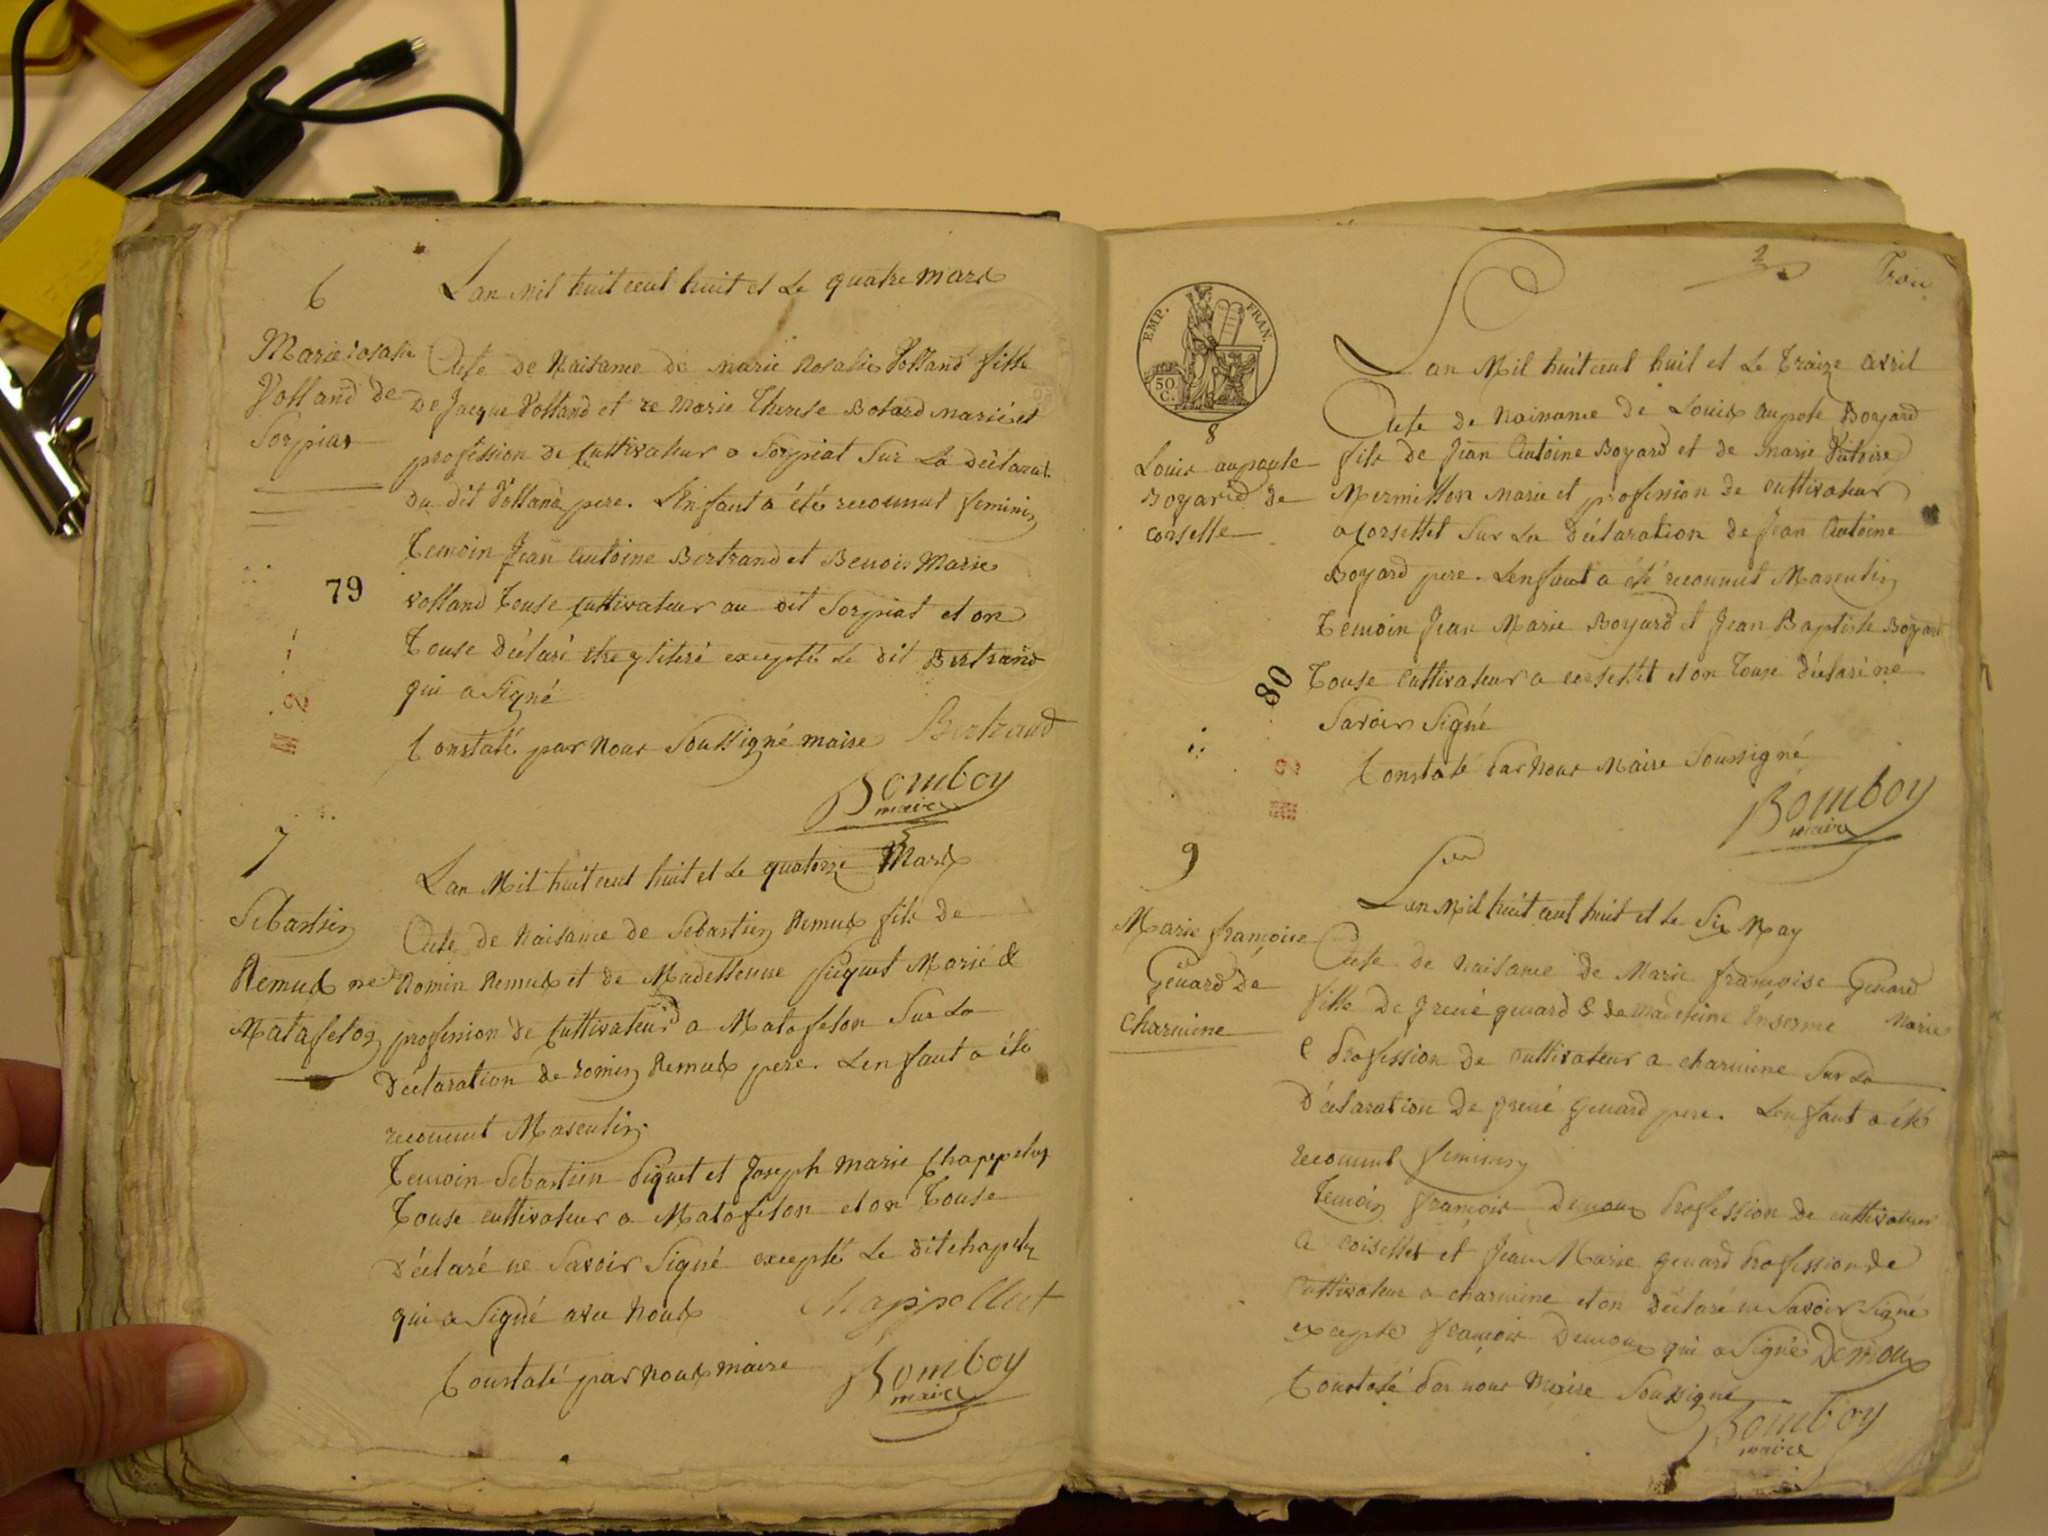 6
Lan Mil huit cent huit et Le quatre mars
Marie rosalie
Volland de
Sorpiat
Acte de Naisance de marie Rosalie Volland fille
De Jacque Volland et de Marie Therese Botard marié et
profession de Cultivateur a Sorpiat Sur La déclarat.
du dit Volland pere. L'enfant a été reconnut feminin
Temoin Jean Antoine Bertrand et Benoit Marie
79
volland Touse Cultivateur au dit Sorpiat et on
Touse Déclaré excepté Le dit Bertrand
qui a Signé
Constaté par nous Soussigné maire Bertrand
Bomboy
maire
7
Lan Mil huit cent huit et Le quatorze Mars
Sebastien
Remud né
Matafelon
Acte de Naisance de Sebastien Remud fils de
Romin Remud et de Madelleinne piquet Marié &
profession de Cultivateur a Matafelon Sur La
Déclaration de romin Remud pere. Lenfant a été
reconnut Masculin
Temoin Sebastien Piquet et Joseph Marie Chappeluy
Touse cultivateur a Matafelon et on Touse
Déclaré ne Savoir Signé excepté Le dit chapeluy
qui a Signé avec Nous Chappelluet
Constaté par Nous maire Bomboy
maire
3 Trois
EMP. FRAN.
50 C.
Lan Mil huit cent huit et Le Traize avril
8
Louis auguste
Boyard de
corselle
Acte de Naisance de Louis auguste Boyard
fils de Jean Antoine Boyard et de marie Victoire
Mermillon Marie et profession de cultivateur
a Corsellet Sur La Déclaration de Jean Antoine
Boyard pere. Lenfant a été reconnut Masculin
Temoin Jean Marie Boyard et Jean Baptiste Boyard
80
Touse Cultivateur a corsellet et on Touse déclaré ne
Savoir Signé
Constaté Par Nous Maire Soussigné
Bomboy
maire
9
Lan Mil huit cent huit et le Six May
Marie françoise
Genard De
Charmine
Acte de Naisance de Marie françoise Genard
fille De frené genard & de madeleine Marie
e Profession de cultivateur a charmine Sur La
Déclaration De frené Genard pere. Lenfant a été
reconnut feminin
Temoin françois Demoux Profession De cultivateur
a coisellet et Jean Marie genard Profession de
Cultivateur a charmine et on Déclaré ne Savoir Signé
excepté françois Demoux qui a Signé Demoux
Constaté Par nous Maire Soussigné
Bomboy
maire